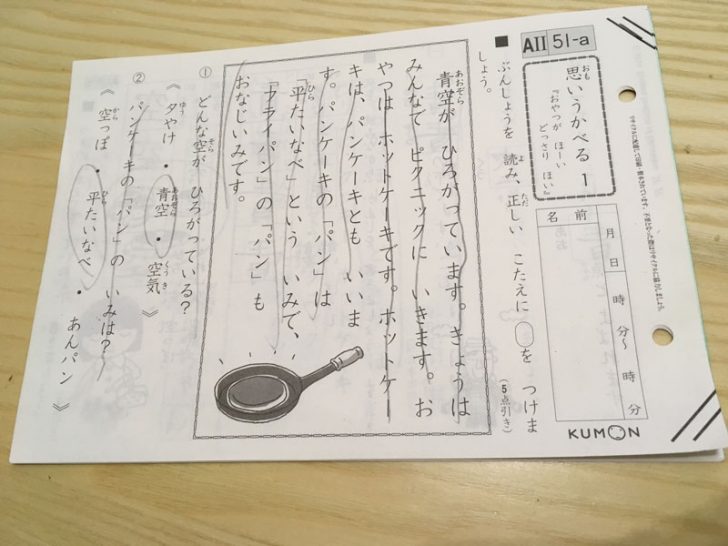 AⅡ 51-a
思いうかべる 1
『おやつが ほーい
どっさり ほい』
月 日 時 分〜 時 分
名前
KUMON
■ ぶんしょうを 読み、正しい こたえに ○を つけま
しょう。
(5点引き)
青空が ひろがっています。きょうは
みんなで ピクニックに いきます。お
やつは ホットケーキです。ホットケー
キは、パンケーキとも いいま
す。パンケーキの 「パン」は
「平たいなべ」という いみで、
「フライパン」の 「パン」も
おなじいみです。
① どんな空が ひろがっている?
《 夕やけ ・ 青空 ・ 空気 》
② パンケーキの 「パン」の いみは?
《 空っぽ ・ 平たいなべ ・ あんパン 》